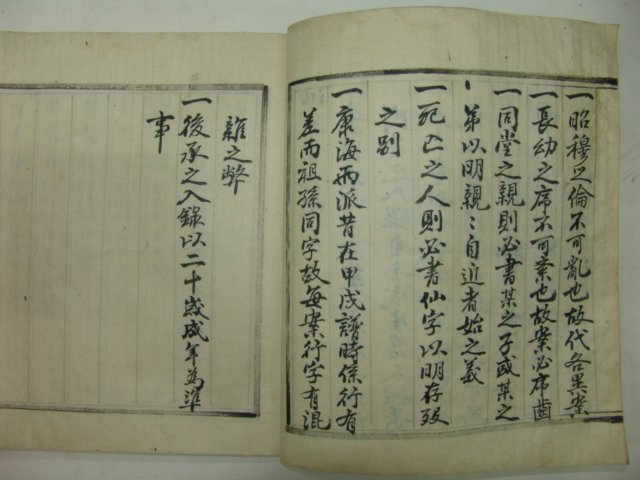 一昭穆之倫不可亂也故代各異案
一長幼之序不可紊也故案必序齒
一同堂之親則必書某之子或某之
弟以明親〻自近者始之義
一死亡之人則必書仙字以明存歿
之別
一康海兩派昔在甲戌譜時係行有
差而祖孫同字故每案行字有混
雜之弊
一後承之入錄以二十歲成年爲準
事